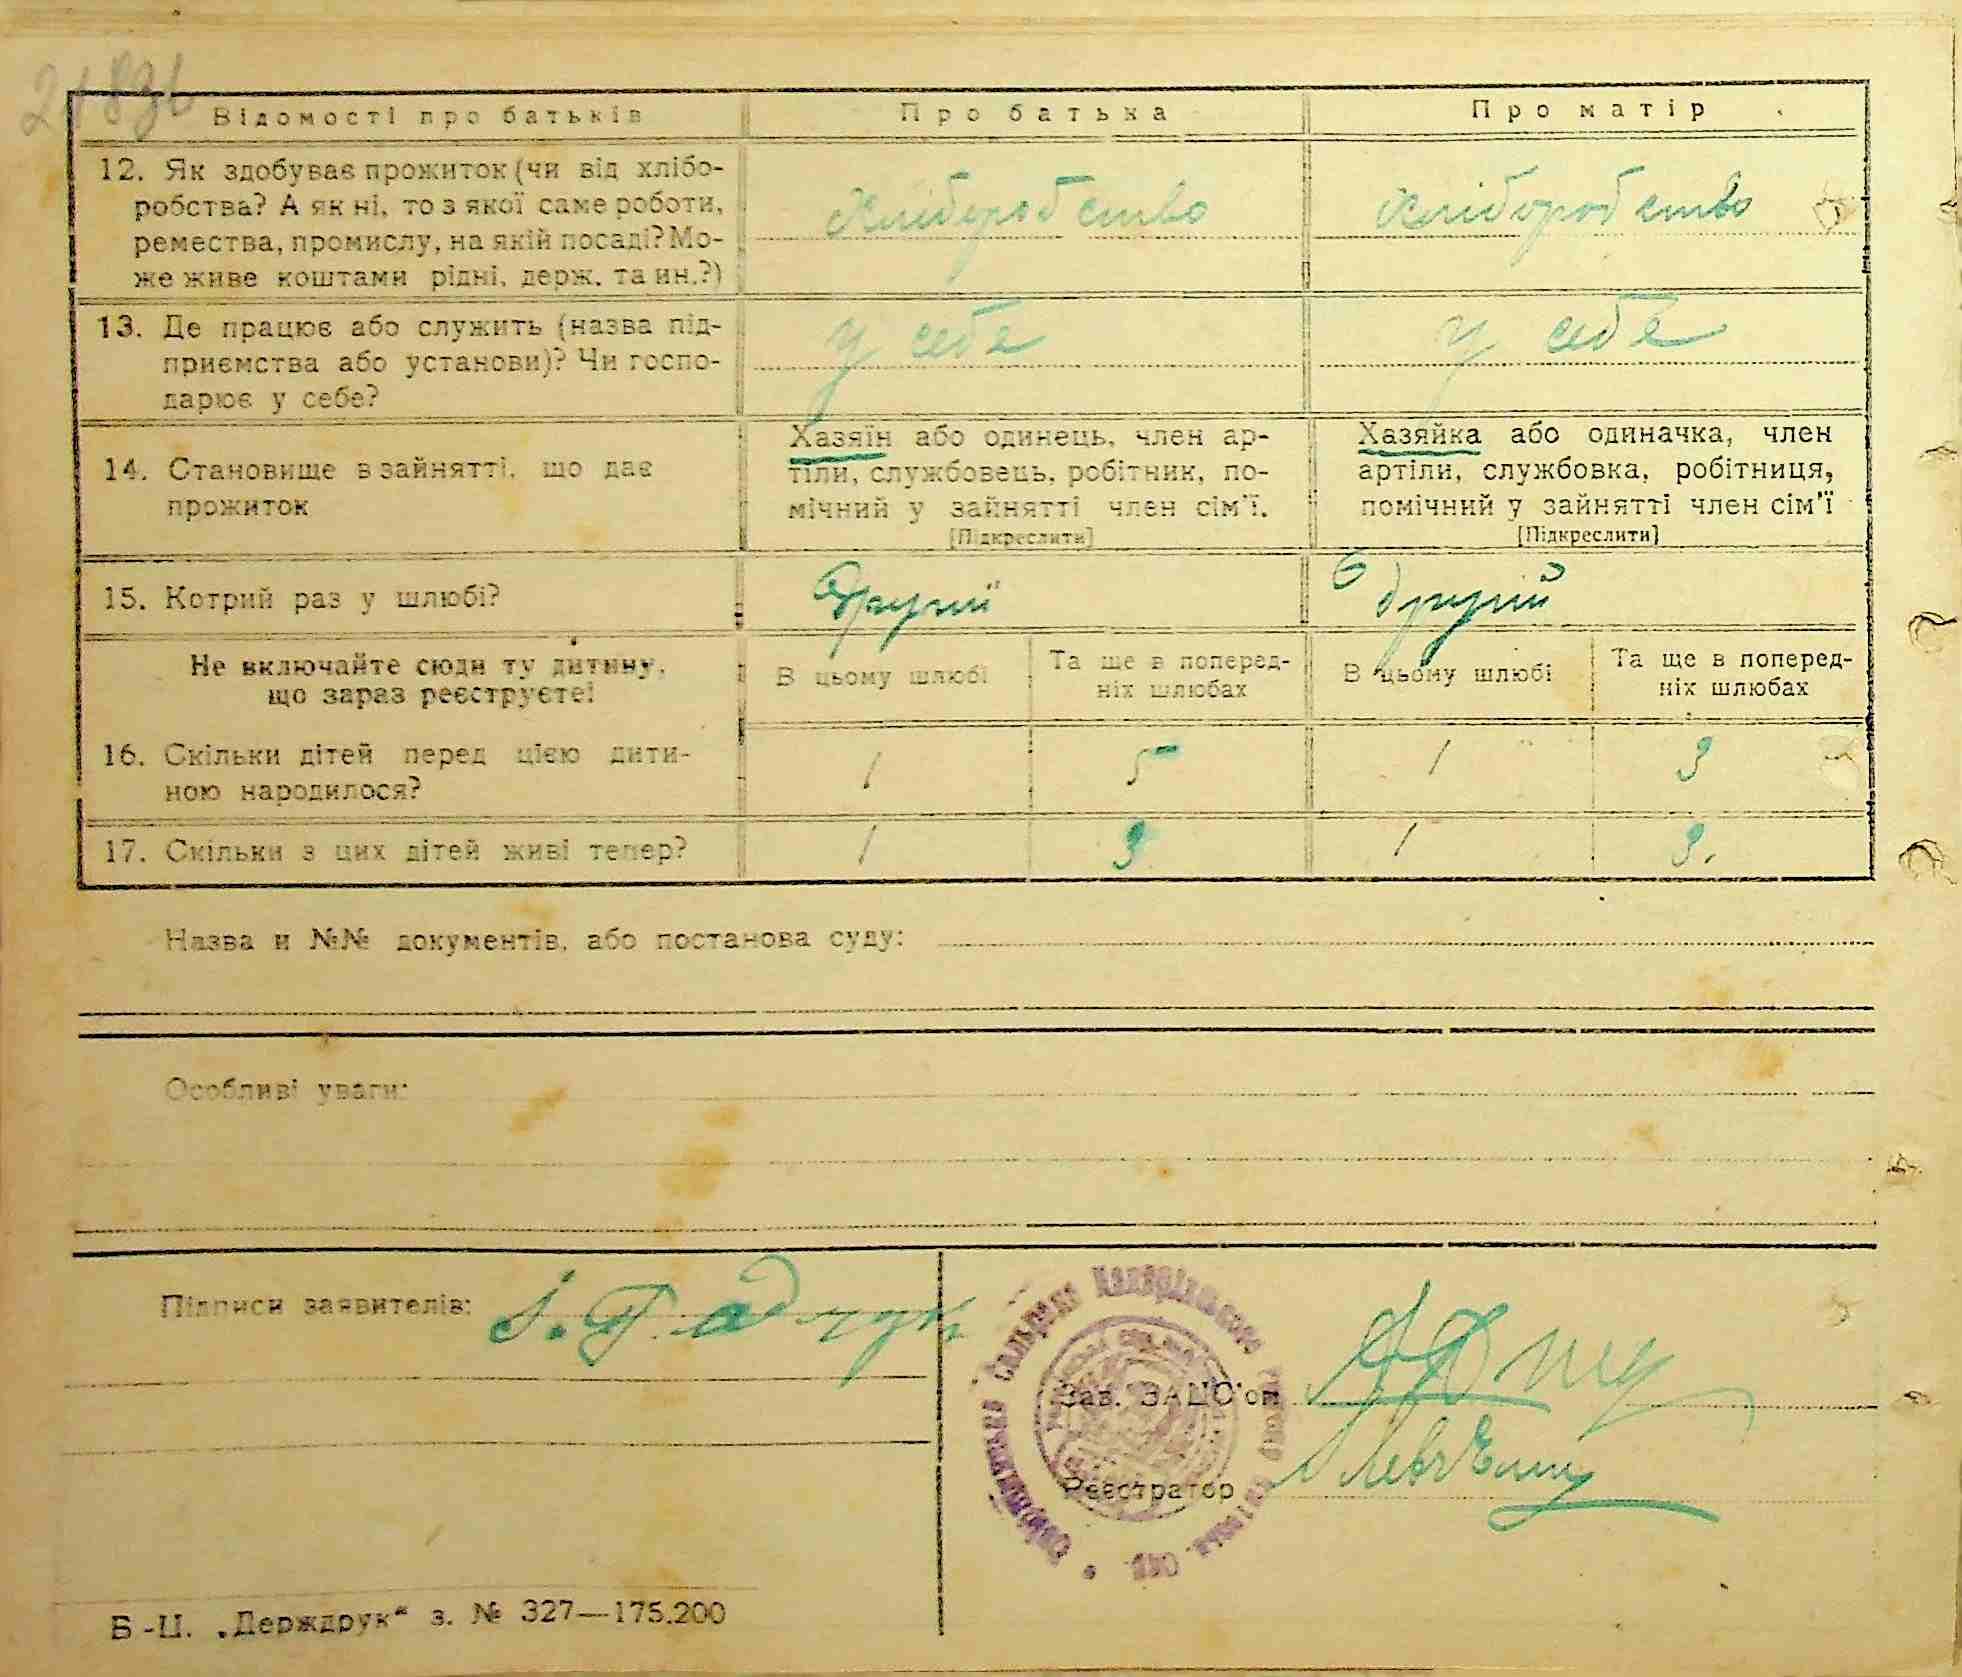 Відомості про батьків
Про батька
Про матір
12. Як здобуває прожиток (чи від хлібо-
робства? А як ні, то з якої саме роботи,
ремества, промислу, на якій посаді? Мо-
же живе коштами рідні, держ. та ин.?)
Хліборобство
Хліборобство
13. Де працює або служить (назва під-
приємства або установи)? Чи госпо-
дарює у себе?
у себе
у себе
14. Становище в зайнятті, що дає
прожиток
Хазяїн або одинець, член ар-
тіли, службовець, робітник, по-
мічний у зайнятті член сім'ї.
[Підкреслити]
Хазяйка або одиначка, член
артіли, службовка, робітниця,
помічний у зайнятті член сім'ї
[Підкреслити]
15. Котрий раз у шлюбі?
Другий
другий
Не включайте сюди ту дитину,
що зараз реєструєте!
В цьому шлюбі
Та ще в поперед-
ніх шлюбах
В цьому шлюбі
Та ще в поперед-
ніх шлюбах
16. Скільки дітей перед цією дити-
ною народилося?
1
5
1
3
17. Скільки з цих дітей живі тепер?
1
3
1
3.
Назва и №№ документів, або постанова суду:
Особливі уваги:
Підписи заявителів:
Зав. ЗАЦС'ом
Реєстратор
Б-Ц. „Держдрук“ з. № 327—175.200